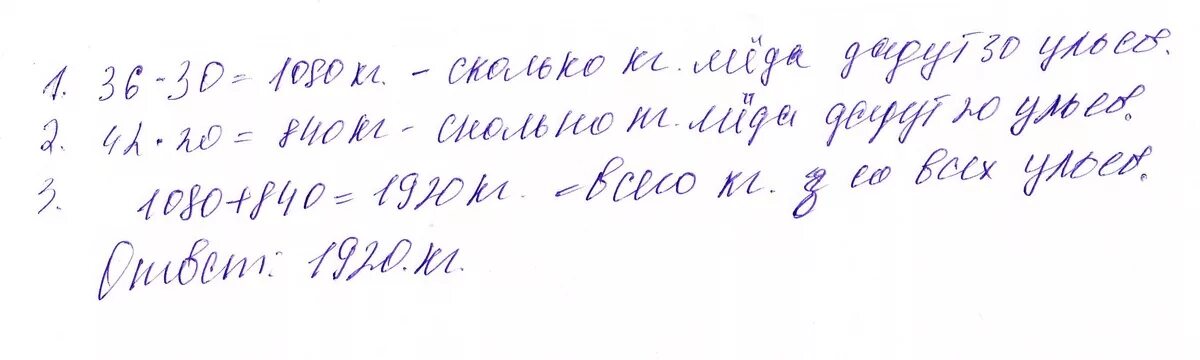 1. 36·30 = 1080 кг. – сколько кг. мёда дадут 30 ульев.
2. 42·20 = 840 кг – сколько кг. мёда дадут 20 ульев.
3. 1080+840 = 1920 кг. = всего кг. со всех ульев.
Ответ: 1920.кг.